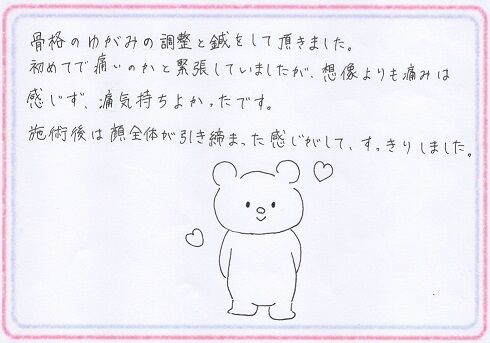 骨格のゆがみの調整と鍼をして頂きました。
初めてで痛いのかと緊張していましたが、想像よりも痛みは
感じず、痛気持ちよかったです。
施術後は顔全体が引き締まった感じがして、すっきりしました。